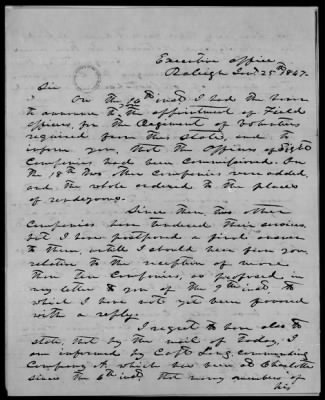 Executive office
Raleigh Jany 25th 1847.
Sir
On the 10th inst I had the honor
to announce to you the appointment of Field
officers, for the Regiment of Volunteers
required from this State, and to
inform you, that the Officers of eight
Companies had been Commissioned. On
the 18th two other Companies were added,
and the whole ordered to the places
of rendezvous.
Since then, two other
Companies have tendered their services,
but I have postponed a final answer
to them, untill I should hear from you,
relative to the reception of more
than ten Companies, as proposed in
my letter to you of the 9th inst, to
which I have not yet been favored
with a reply.
I regret to have also to
state, that by the mail of today, I
am informed by Capt Long, commanding
Company A. which has been at Charlotte
since the 6th inst, that many members of
his